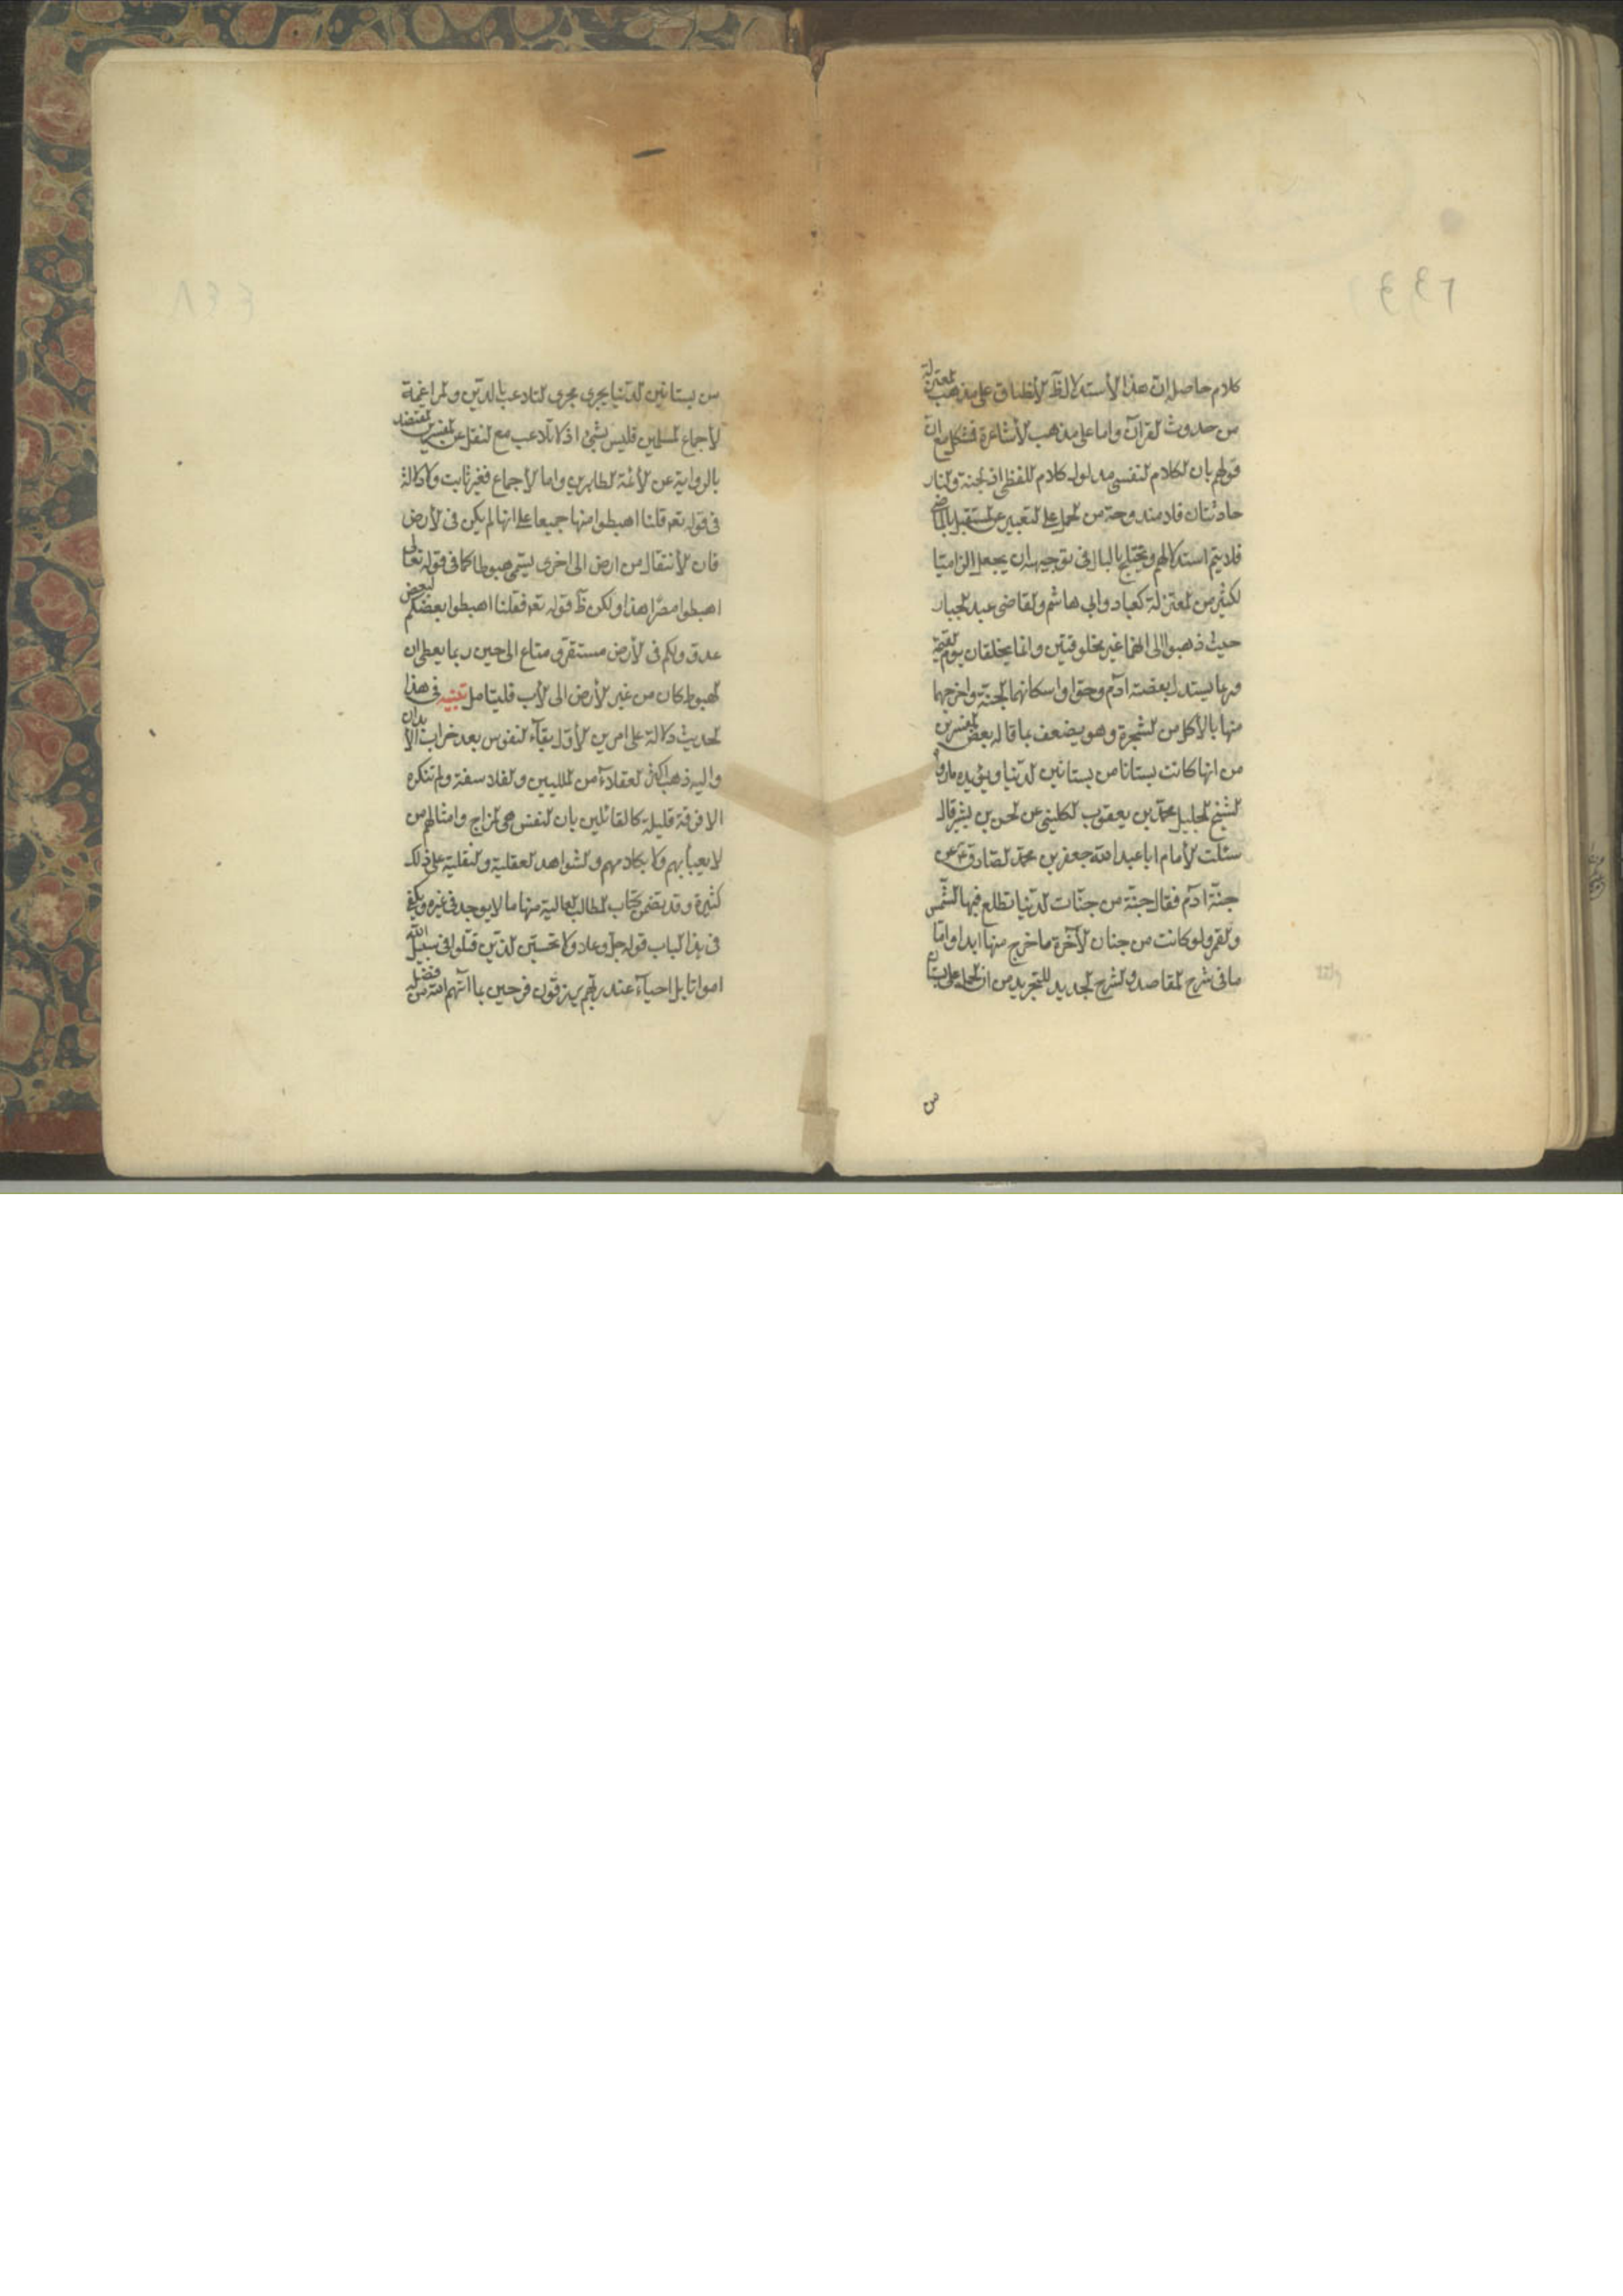 كلام حاصل ان هذا الأستدلال ظ الأنطباق على مذهب المعتزلة
من حدوث القرآن واما على مذهب الأشاعرة فمشكل مع ان
قولهم بان الكلام النفسى مدلول كلام اللفظى اذ الجنة والنار
حادثتان فلا مندوحة من الحمل على التعبير عن المستقبل بالماضى
فلا يتم استدلالهم ويختلج بالبال فى توجيهه ان يجعل الزاميّا
لكثير من المعتزلة كعباد وابى هاشم والقاضى عبد الجبار
حيث ذهبوا الى انهما غير مخلوقتين وانما يخلقان يوم القيمة
وربما يستدل بقصة ادم وحوّا واسكانهما الجنة واخرجهما
منها بالأكل من الشجرة وهو يضعف بما قاله بعض المفسرين
من انها كانت بستانا من بستانين الدنيا ويؤيده ما رواه
الشيخ الجليل محمد بن يعقوب الكلينى عن الحسن بن بشير قال
سئلت الأمام ابا عبد الله جعفر بن محمد الصادق ع عن
جنّة ادم فقال جنّة من جنّات الدنيا تطلع فيها الشمس
والقمر ولو كانت من جنان الآخرة ما خرج منها ابدا واما
ما فى شرح المقاصد والشرح الجديد للتجريد من ان الحمل على بستان
من
من بستانين الدنيا يجرى مجرى التلاعب بالدين والمراغمة
لأجماع المسلمين فليس بشئ اذ لا تلاعب مع النقل عن المفسرين المعتضد
بالرواية عن الأئمة الطاهرين واما الأجماع فغير ثابت ولا دلالة
فى قوله تعه قلنا اهبطوا منها جميعا على انها لم يكن فى الأرض
فان الأنتقال من ارض الى اخرى يسمى هبوطا كما فى قوله تعالى
اهبطوا مصرا هذا ولكن ظ قوله تعه فقلنا اهبطوا بعضكم لبعض
عدو ولكم فى الأرض مستقر و متاع الى حين ربما يعطى ان
الهبوط كان من غير الأرض الى الأرض فليتامل تنبيه فى هذا
الحديث دلالة على امرين الأول بقآء النفوس بعد خراب الأبدان
واليه ذهب اكثر العقلاء من المليين والفلاسفة ولم تنكره
الا فرقة قليلة كالقائلين بان النفس هى المزاج وامثالهم من
لا يعبأ بهم ولا بكلامهم والشواهد العقلية والنقلية على ذلك
كثيرة وقد تضمن كتاب المطالب العالية منها ما لا يوجد فى غيره ويكفى
فى هذا الباب قوله جل وعلا ولا تحسبن الذين قتلوا فى سبيل الله
امواتا بل احيآء عند ربهم يرزقون فرحين بما اتيهم الله من فضله